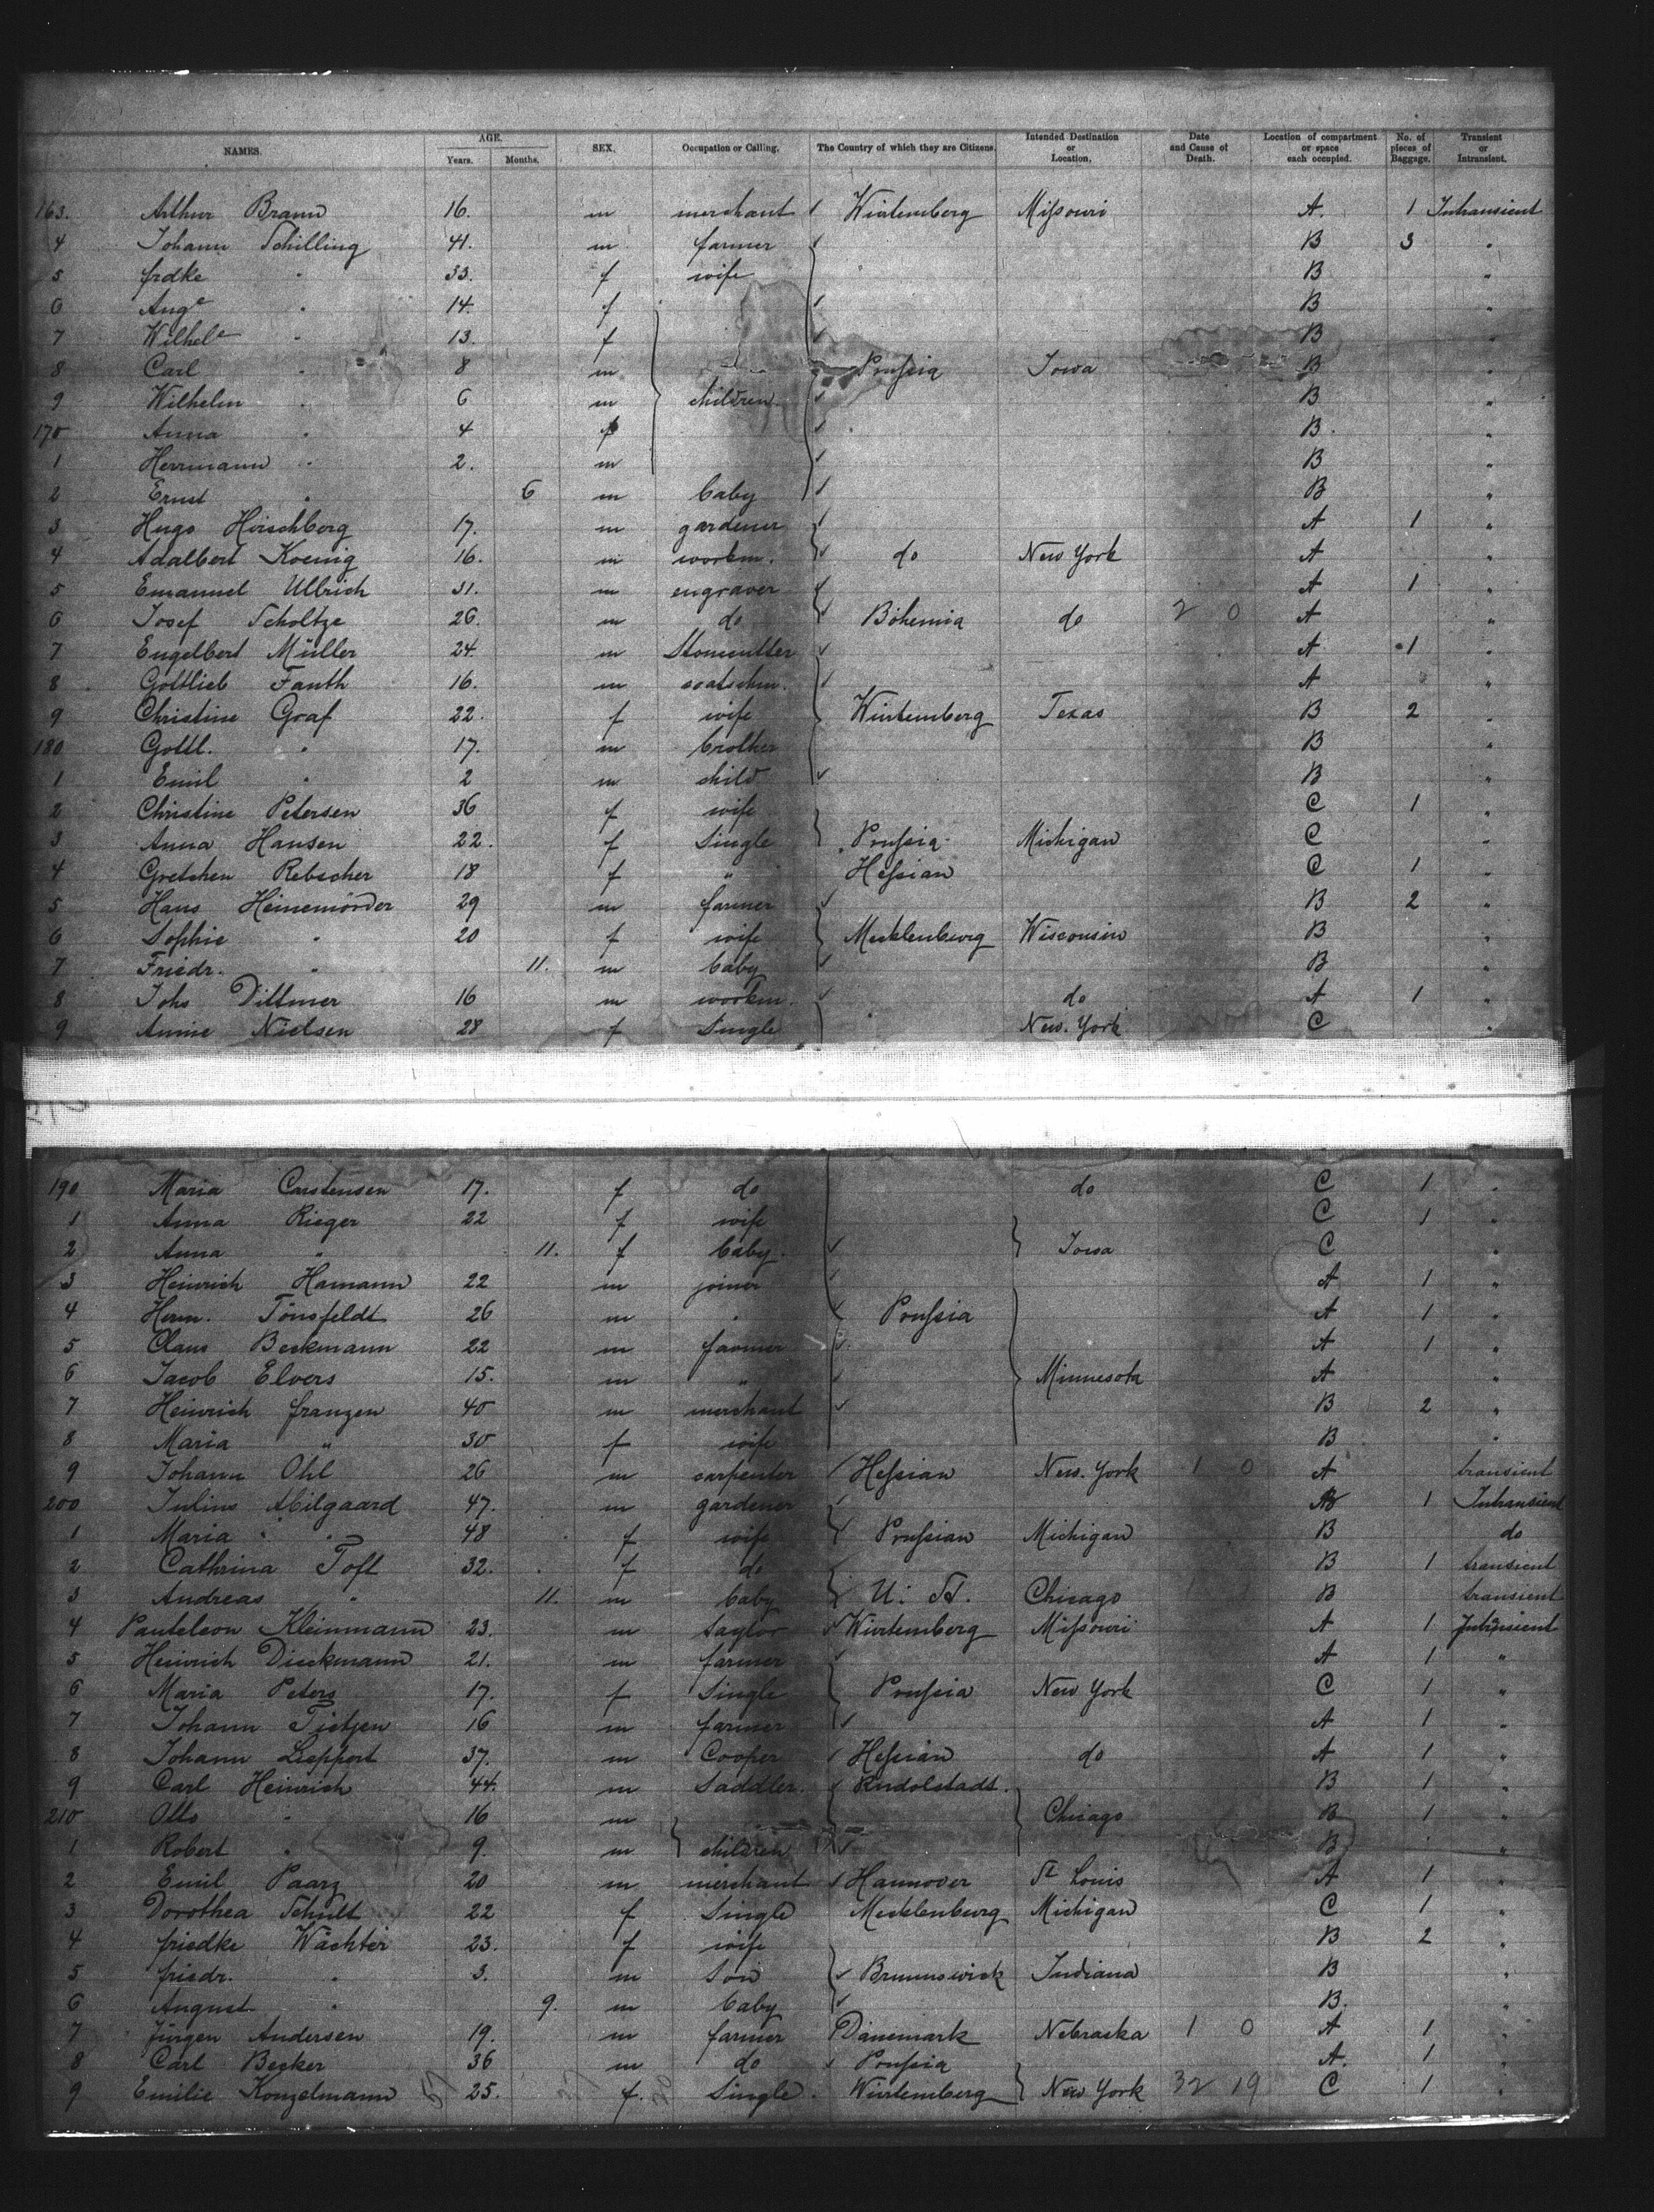 NAMES. AGE. Years. Months. SEX. Occupation or Calling. The Country of which they are Citizens. Intended Destination or Location. Date and Cause of Death. Location of compartment or space each occupied. No. of pieces of Baggage. Transient or Intransient.
163. Arthur Braun 16. m merchant Würtemberg Missouri A. 1 Intransient
4 Johann Schilling 41. m farmer B 3 "
5 frdke " 33. f wife B "
6 Auge " 14. f B "
7 Wilhele " 13. f B "
8 Carl " 8 m Prussia Iowa B "
9 Wilhelm " 6 m children B "
170 Anna " 4 f B. "
1 Herrmann " 2. m B "
2 Ernst " 6 m baby B "
3 Hugo Hirschberg 17. m gardener A 1 "
4 Adalbert Koenig 16. m workm. do New York A "
5 Emanuel Ullrich 31. m engraver A 1 "
6 Josef Scholtze 26. m do Bohemia do 2 0 A "
7 Engelbert Müller 24. m Stonecutter A 1 "
8 Gottlieb Fauth 16. m A "
9 Christine Graf 22. f wife Würtemberg Texas B 2 "
180 Gottl. " 17. m brother B "
1 Emil " 2 m child B "
2 Christine Petersen 36 f wife C 1 "
3 Anna Hansen 22. f Single Prussia Michigan C "
4 Gretchen Rebscher 18 f " Hessian C 1 "
5 Hans Heinemörder 29 m farmer B 2 "
6 Sophie " 20 f wife Mecklenburg Wisconsin B "
7 Friedr. " 11. m baby B "
8 Johs Dittmer 16 m workm. do A 1 "
9 Annie Nielsen 28 f Single New. York C "
190 Maria Carstensen 17. f do do C 1 "
1 Anna Rieger 22 f wife C 1 "
2 Anna " 11. f baby. Iowa C "
3 Heinrich Hamann 22 m joiner A 1 "
4 Herm. Tönsfeldt 26 m " Prussia A 1 "
5 Claus Beckmann 22 m farmer A 1 "
6 Jacob Elvers 15. m " Minnesota A "
7 Heinrich franzen 40 m merchant B 2 "
8 Maria " 30 f wife B "
9 Johann Ohl 26 m carpenter Hessian New. York 1 0 A transient
200 Julius Abilgaard 47. m gardener B 1 Intransient
1 Maria " 48 f wife Prussian Michigan B do
2 Cathrina Toft 32. f do B 1 transient
3 Andreas " 11. m baby U. St. Chicago B transient
4 Panteleon Kleinmann 23. m taylor Würtemberg Missouri A 1 Intransient
5 Heinrich Dieckmann 21. m farmer A 1 "
6 Maria Peters 17. f Single Prussia New York C 1 "
7 Johann Tietjen 16 m farmer A 1 "
8 Johann Lieppert 37. m Cooper Hessian do A 1 "
9 Carl Heinrich 44. m Saddler. Rudolstadt. B 1 "
210 Otto " 16 m Chicago B 1 "
1 Robert " 9. m children B "
2 Emil Paarz 20 m merchant Hannover St Louis A 1 "
3 Dorothea Schult 22 f Single Mecklenburg Michigan C 1 "
4 friedke Wächter 23. f wife B 2 "
5 friedr. " 3. m Son Brunnswick Indiana B "
6 August " 9. m baby B. "
7 Jürgen Andersen 19. m farmer Dänemark Nebraska 1 0 A 1 "
8 Carl Becker 36 m do Prussia A. 1 "
9 Emilie Konzelmann 25. f. Single. Würtemberg New York 32 19 C 1 "